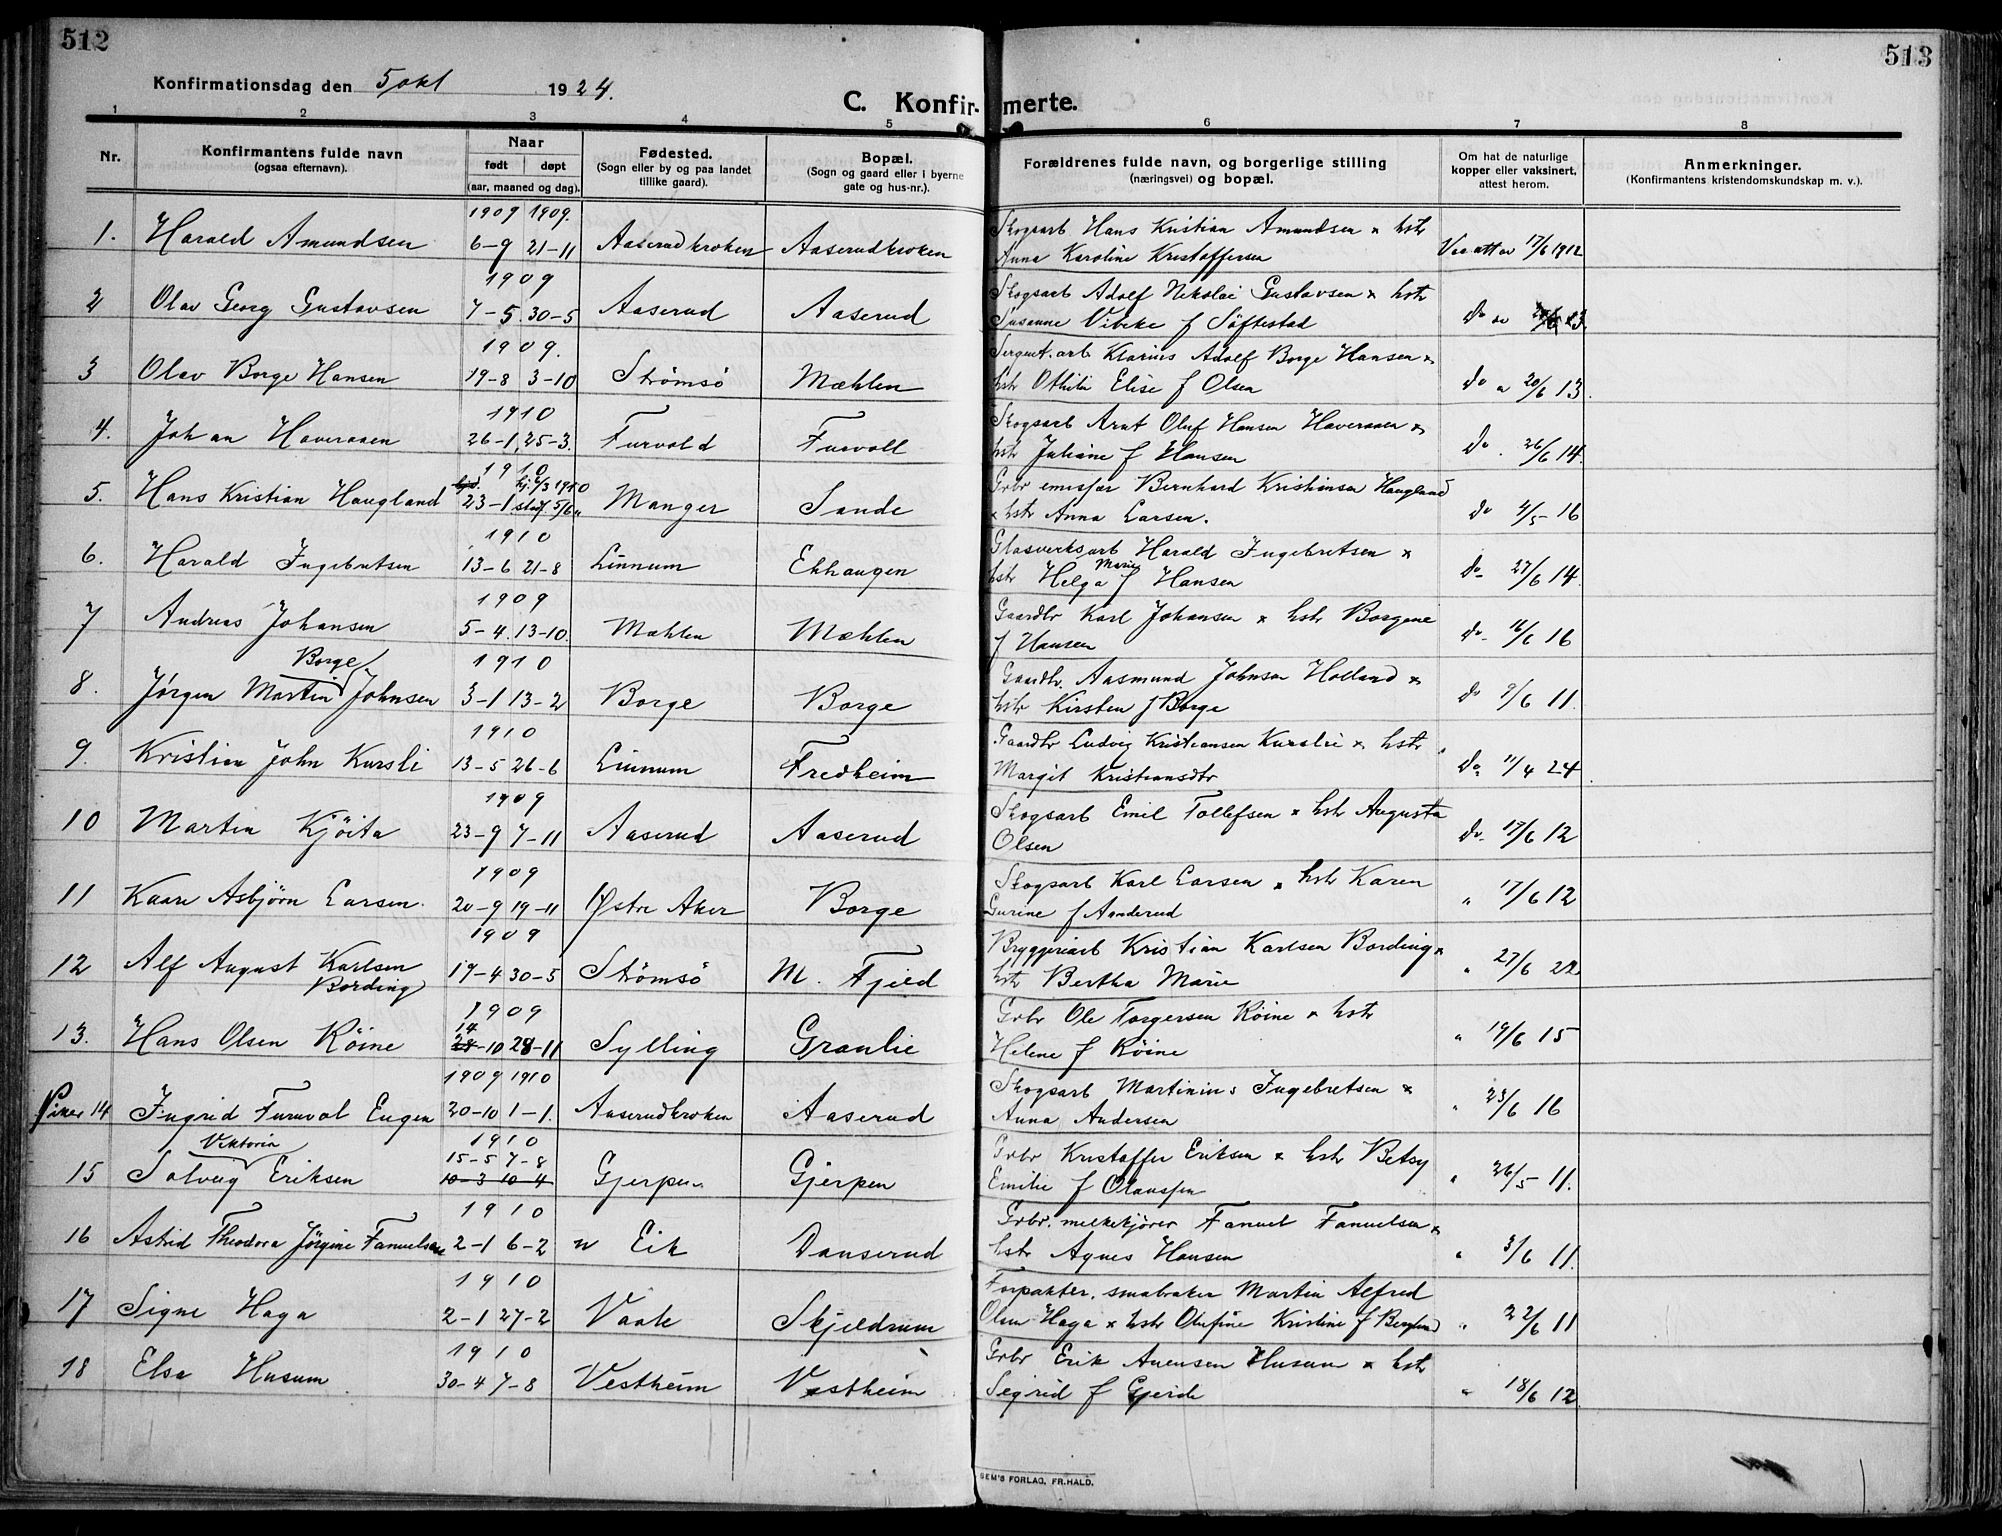 512
513
Konfirmationsdag den 5 okt 1924.
C. Konfir-merte.
1 2 3 4 5 6 7 8
Nr.
Konfirmantens fulde navn
(ogsaa efternavn).
Naar
født døpt
(aar, maaned og dag).
Fødested.
(Sogn eller by og paa landet
tillike gaard).
Bopæl.
(Sogn og gaard eller i byerne
gate og hus-nr.).
Forældrenes fulde navn, og borgerlige stilling
(næringsvei) og bopæl.
Om hat de naturlige
kopper eller vaksinert,
attest herom.
Anmerkninger.
(Konfirmantens kristendomskundskap m. v.).
1909 1909.
1. Harald Amundsen 6-9 21-11 Aaserudkroken Aaserudkroken
Skogsarb Hans Kristian Amundsen x hstr
Anna Karoline Kristoffersen
Vac att av 17/6 1912
1909
2 Olav Georg Gustavsen 7-5. 30-5 Aaserud Aaserud
Skogsarb Adolf Nikolai Gustavsen x hstr
Susanne Vibeke f Söftestad
Do
1909.
3 Olav Borge Hansen 19-8 3-10 Strømsö Mæhlen
Sergent. arb Klarius Adolf Borge Hansen x
hstr Othilie Elise f Olsen
Do 20/6 13.
1910
4. Johan Haveraaen 26-1, 25-3. Furvold Furvoll
Skogsarb Arnt Oluf Hansen Haveraaen x
hstr Juliane f Hansen
Do. 26/6 14.
1910
5. Hans Kristian Haugland 23-1 Manger Sande
Grbr emisær Bernhard Kristiansen Haugland
x hstr Anna Larsen.
Do 4/5-16
1910
6. Harald Ingebretsen 13-6 21-8 Linnum Ekhaugen
Glasverksarb Harald Ingebretsen x
Marie
hstr Helga f Hansen
Do- 27/6 14.
1909
7 Andreas Johansen 5-4. 13-10. Mæhlen Mæhlen
Gaardbr Karl Johansen x hstr Borgine
f Hansen
Do- 16/6 16
Borge
1910
8. Jørgen Martin Johnsen 3-1 13-2 Borge Borge
Gaardbr. Aasmund Johnsen Holland x
hstr Kirsten f Borge
Do 9/6 11.
1910
9. Kristian John Kursli 13-5 26-6 Linnum Fredheim
Gaardbr Ludvig Kristiansen Kurslie x hstr
Margit Kristiansdtr
Do. 11/4 24
1909
10 Martin Kjöita 23-9 7-11 Aaserud Aaserud
Skogsarb Emil Tollefsen x hstr Augusta
Olsen
Do. 17/6 12
1909
11 Kaare Asbjørn Larsen. 20-9 19-11 Østre Aker Borge
Skogsarb Karl Larsen x hstr Karen
Gurine f Aanderud
" 17/6 12
1909
12 Alf August Karlsen 17-4 30-5 Strömsö M. Fjeld
Bording
Bryggeriarb Kristian Karlsen Bording x
hstr Bertha Marie
" 27/6 22
1909
14
13. Hans Olsen Röine 24-10 28-11 Sylling Granlie
Grbr Ole Torgersen Röine x hstr
Helene f Röine
" 19/6 15
1909 1910
Piker 14 Ingrid Furuvol Eugen 20-10 1-1. Aaserudkroken Aaserud
Skogsarb Martinius Ingebretsen x
Anna Andersen
" 23/6 16
Viktoria
1910
15-5 7-8
15 Solveig Eriksen 10-3 10-4 Gjerpen Gjerpen
Grbr Kristoffer Eriksen x hstr Betsy
Emilie f Olaussen
" 26/5-11.
1910
16 Astrid Theodora Jörgine Fanuelsen 2-1 6-2 n Eik Danserud
Grbr. melkekjører Fanuel Fanuelsen x
hstr Agnes Hansen
" 3/6 11.
1910
17 Signe Haga 2-1 27-2 Vaale Skjeldrum
Forpakter, smabruker Martin Alfred
Olsen Haga x hstr Olufine Kristine f
" 22/6 11
1910
18 Elsa Husum 30-4 7-8 Vestheim Vestheim
Grbr Erik Husum x hstr
Sigrid f Gjerde
" 18/6 12.
SEM'S FORLAG, FR. HALD.